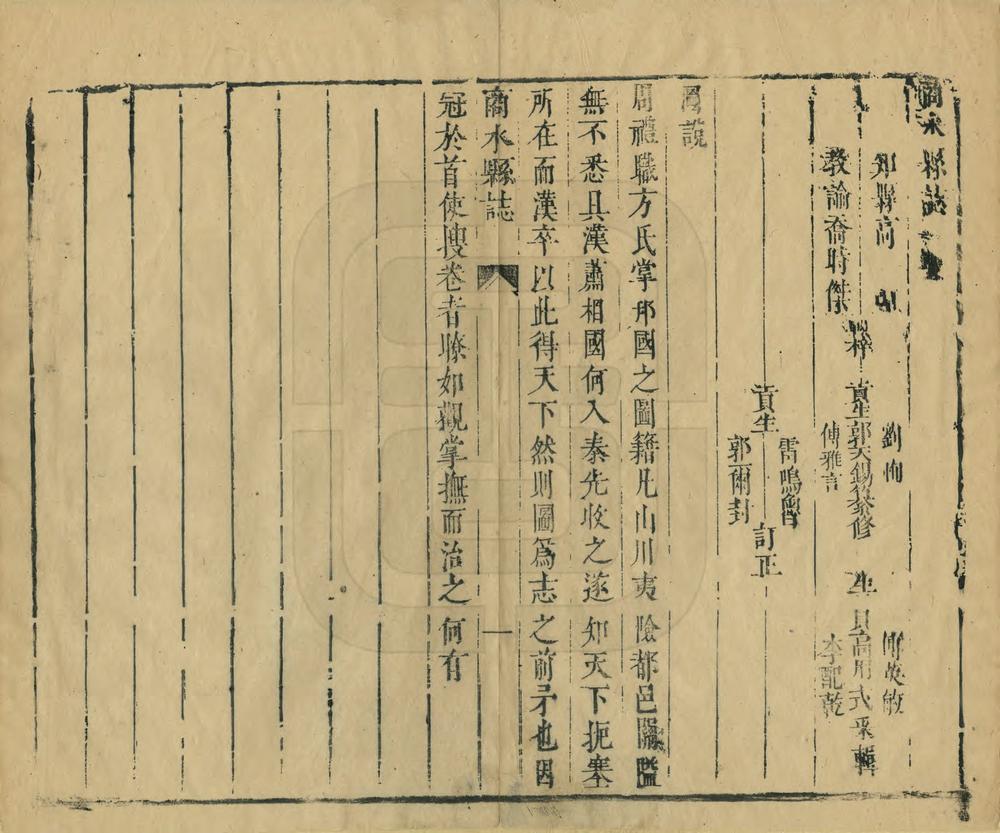 商水縣誌
知縣高
教諭喬時傑
梓
貢生
劉恂
郭天錫
傅雅言
纂修
生員
傅英敏
高用式
李配乾
采輯
貢生
雷鳴魯
郭爾封
訂正
圖說
周禮職方氏掌邦國之圖籍凡山川夷險都邑關隘
無不悉具漢蕭相國何入秦先收之遂知天下扼塞
所在而漢卒以此得天下然則圖為志之前矛也因
商水縣誌
一
冠於首使搜卷者瞭如觀掌撫而治之何有